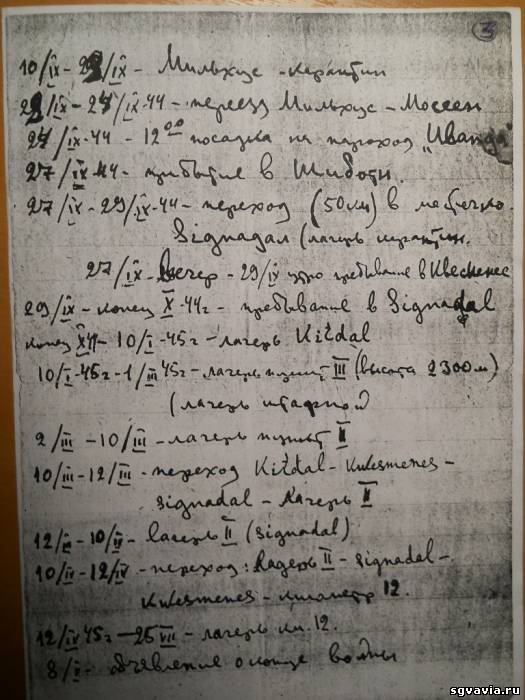 3
10/IX - 22/IX - Мильхус - карантин
22/IX - 24/IX-44 - переезд Мильхус - Мосеен
24/IX-44 - 12⁰⁰ посадка на пароход „Иванда"
27/IX-44 - прибытие в Шиботн.
27/IX - 29/IX-44 - переход (50км) в местечко
Signadaл (лагерь карантин.
27/IX вечер - 29/IX утро пребывание в Квесменес
29/IX - конец X-44г - пребывание в Signadal
конец X 44 - 10/I-45г - лагерь Kitdal
10/I-45г - 1/III 45г - лагерь пункт III (высота 2300м)
(лагерь штрафной)
2/III - 10/III - лагерь пункт II
10/III - 12/III - переход Kitdal - Kvesmenes -
signadal - Лагерь II
12/III - 10/IV - Лагерь II (signadal)
10/IV - 12/IV - переход: Лагерь II - signadel -
Kvesmenes - километр 12.
12/IV 45г - 25 VII - лагерь км. 12.
8/V - объявление о конце войны
sgvavia.ru